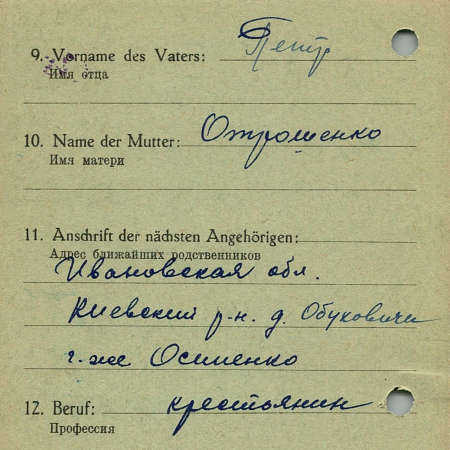 9. Vorname des Vaters: Петр
Имя отца
10. Name der Mutter: Отрошенко
Имя матери
11. Anschrift der nächsten Angehörigen:
Адрес ближайших родственников
Ивановская обл.
Киевский р-н. д. Обуховичи
г-же Осипенко
12. Beruf: крестьянин
Профессия